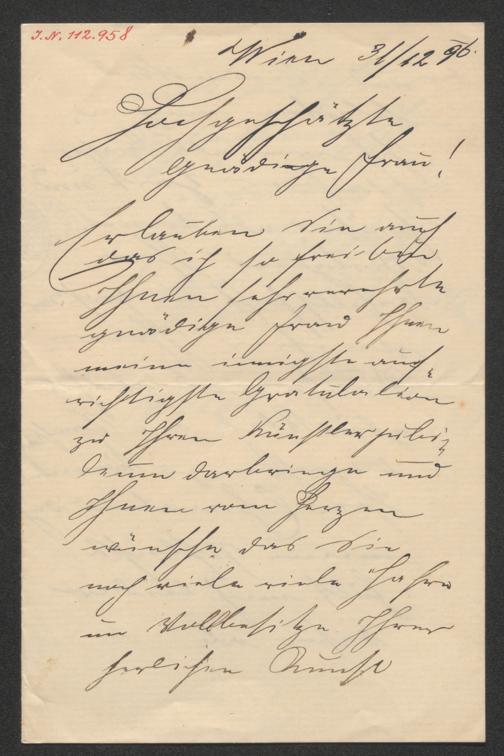 J.N. 112.958
Wien 31/12 96.
Hochgeschätzte
gnädige Frau!
Erlauben Sie auch
das ich so frei bin
Ihnen sehr verehrte
gnädige Frau Ihnen
meine innigste auf-
richtigste Gratulation
zu Ihren Künstlerjubi-
leum darbringe und
Ihnen vom Herzen
wünsche das Sie
noch viele viele Jahre
im Vollbesitze Ihrer
herlichen Kunst